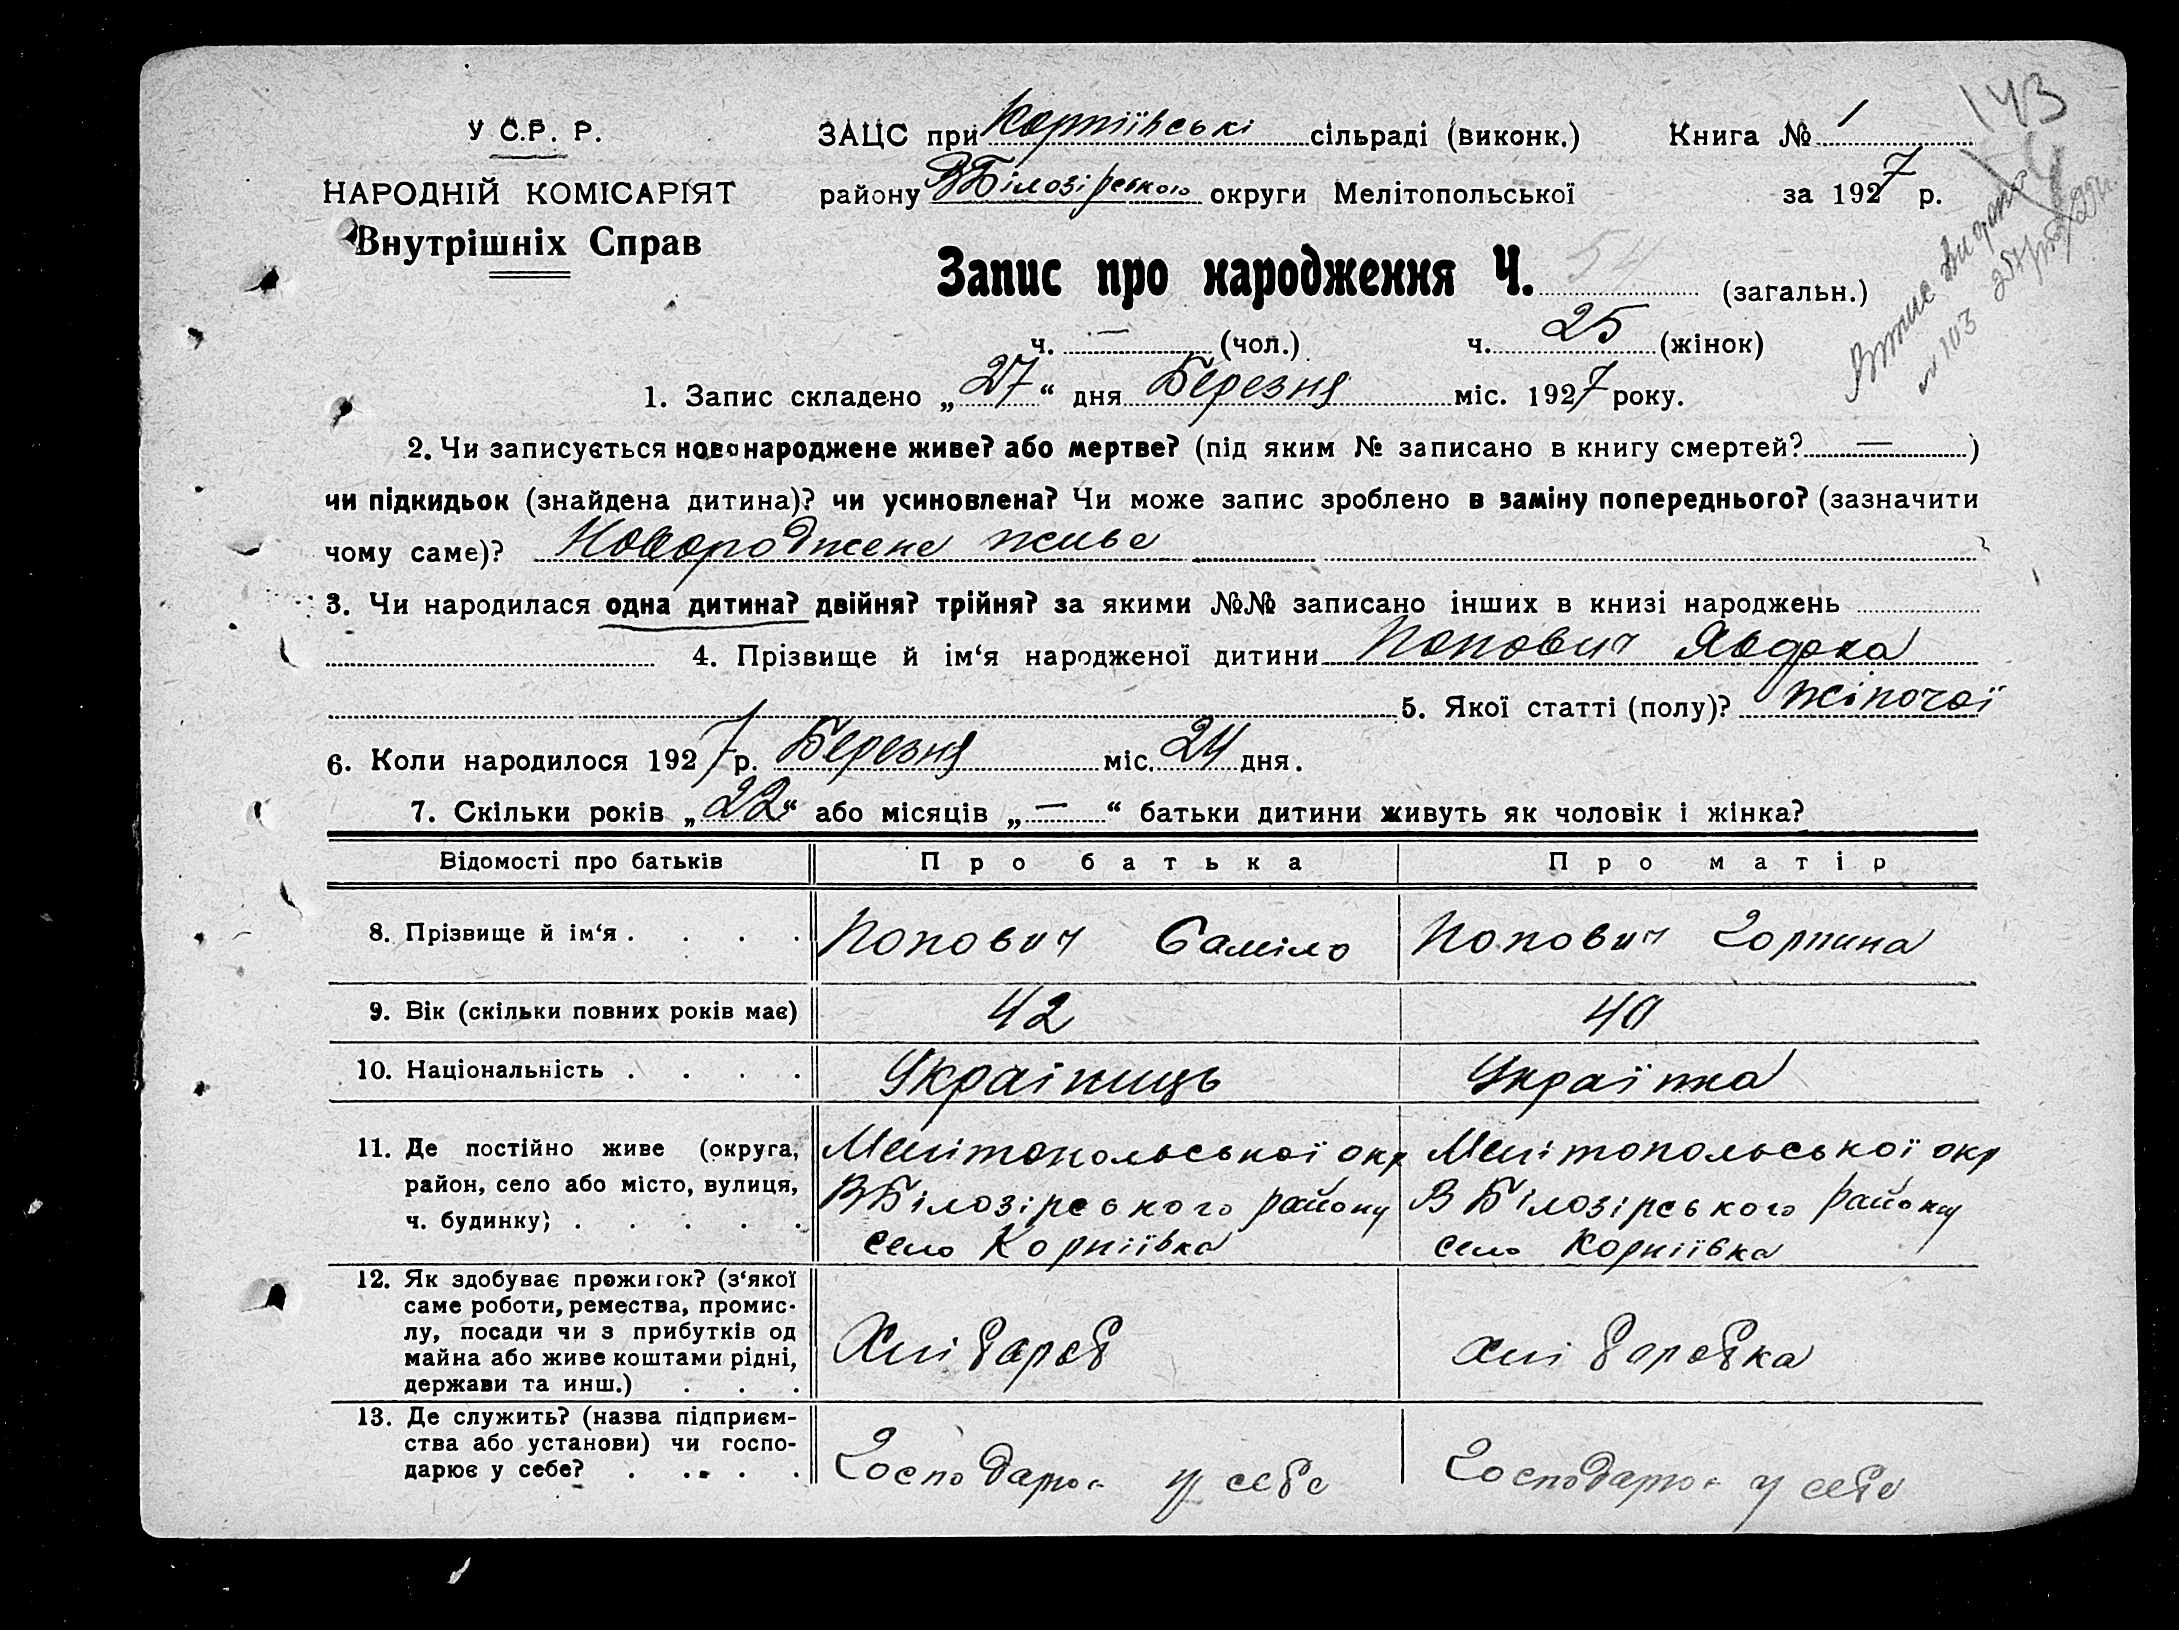 143
У С.Р. Р.
ЗАЦС при Корніївські сільраді (виконк.) Книга № 1
НАРОДНІЙ КОМІСАРІЯТ
району ВБілозірського округи Мелітопольської за 1927 р.
Внутрішніх Справ
Запис про народження Ч. 54 (загальн.)
ч. — (чол.) ч. 25 (жінок)
1. Запис складено „27“ дня Березня міс. 1927 року.
2. Чи записується новонароджене живе? або мертве? (під яким № записано в книгу смертей? — )
чи підкидьок (знайдена дитина)? чи усиновлена? Чи може запис зроблено в заміну попереднього? (зазначити
чому саме)? Новороджене живе
3. Чи народилася одна дитина? двійня? трійня? за якими №№ записано інших в книзі народжень
4. Прізвище й ім‘я народженої дитини Попович Явдока
5. Якої статті (полу)? жіночої
6. Коли народилося 1927 р. Березня міс. 24 дня.
7. Скільки років „22“ або місяців „—“ батьки дитини живуть як чоловік і жінка?
Відомості про батьків Про батька Про матір
8. Прізвище й ім‘я . . . . Попович Саміло Попович Горпина
9. Вік (скільки повних років має) 42 40
10. Національність . . . . Україниць Українка
11. Де постійно живе (округа, Мелітопольської окр Мелітопольської окр
район, село або місто, вулиця, ВБілозірського району В Білозірського району
ч. будинку) . . . . . село Корніївка село Корніївка
12. Як здобуває прожиток? (з‘якої
саме роботи, ремества, промис-
лу, посади чи з прибутків од
майна або живе коштами рідні, Хлібороб хліборобка
держави та инш.) . . .
13. Де служить? (назва підприєм-
ства або установи) чи госпо-
дарює у себе? . . . . . Господарює у себе Господарює у себе